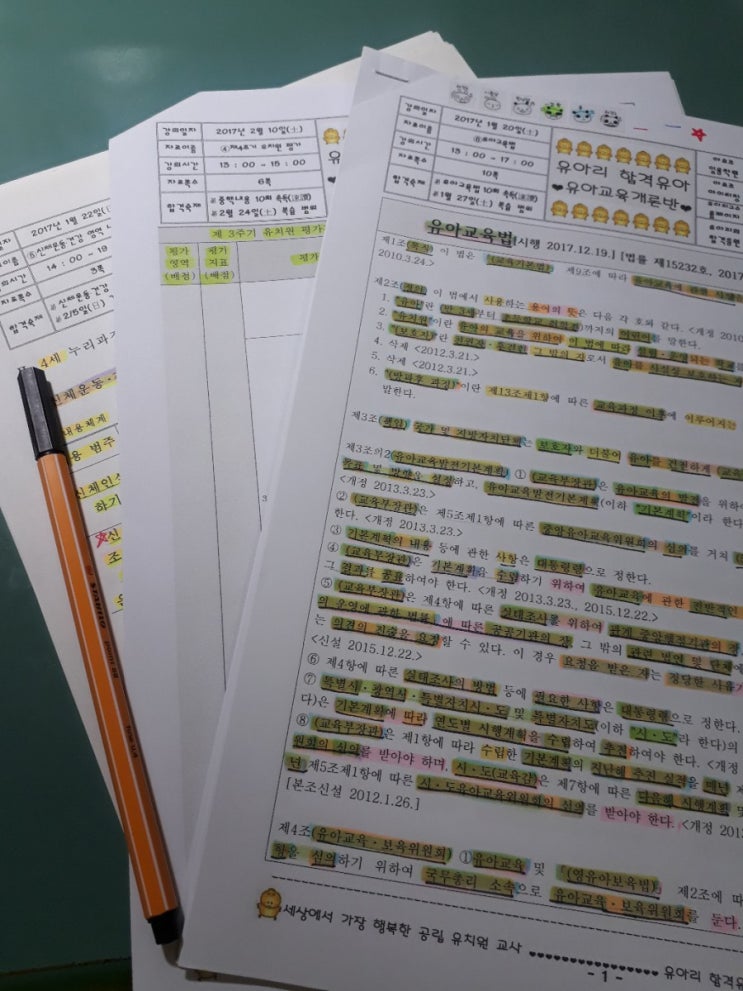 강의일자 2017년 1월 22일(日)
⑤신체운동·건강 영역
14 : 00 ~ 19
3쪽
합격숙제 ※신체운동·건강
※2/5일(日)
4세 누리과
신체운동·
내용체계
용 범주
신체인식
하기
☆신
조
강의일자 2017년 2월 10일(土)
자료이름 ④제4주기 유치원 평가
강의시간 13 : 00 ~ 15 : 00
자료쪽수 6쪽
합격숙제 ※총책내용 10회 속독(速讀)
※2월 24일(土) 복습 범위
제 3주기 유치원 평가
평가 영역 (배점) 평가 지표 (배점) 평가
강의일자 2017년 1월 20일(土)
자료이름 ⑥유아교육법
강의시간 13 : 00 ~ 17 : 00
자료쪽수 10쪽
합격숙제 ※유아교육법 10회 속독(速讀)
※1월 27일(土) 복습 범위
유아리 합격유아
♥유아교육개론반♥
유아교육법[시행 2017.12.19.] [법률 제15232호, 2017
제1조(목적) 이 법은 「교육기본법」 제9조에 따라 유아교육에 관한 사항을
2010.3.24.>
제2조(정의) 이 법에서 사용하는 용어의 뜻은 다음 각 호와 같다. <개정 2010
1. "유아"란 만 3세부터 초등학교 취학전까지의 어린이를 말한다.
2. "유치원"이란 유아의 교육을 위하여 이 법에 따라 설립·운영되는 학교를
3. "보호자"란 친권자·후견인 그 밖의 자로서 유아를 사실상 보호하는 자
4. 삭제 <2012.3.21.>
5. 삭제 <2012.3.21.>
6. "방과후 과정"이란 제13조제1항에 따른 교육과정 이후에 이루어지는
말한다.
제3조(책임) 국가 및 지방자치단체는 보호자와 더불어 유아를 건전하게 교육
제3조의2(유아교육발전기본계획) ① 교육부장관은 유아교육의 발전을 위하여
목표 및 방향을 설정하고, 유아교육발전기본계획(이하 "기본계획"이라 한다
<개정 2013.3.23.>
② 교육부장관은 제5조제1항에 따른 중앙유아교육위원회의 심의를 거쳐
한다. <개정 2013.3.23.>
③ 기본계획의 내용 등에 관한 사항은 대통령령으로 정한다.
④ 교육부장관은 기본계획을 수립하기 위하여 유아교육에 관한 전반적인
그 결과를 공표하여야 한다. <개정 2013.3.23., 2015.12.22.>
⑤ 교육부장관은 제4항에 따른 실태조사를 위하여 관계 중앙행정기관의 장
의 운영에 관한 법률」에 따른 공공기관의 장, 그 밖의 관련 법인 및 단체에
는 의견의 진술을 요청할 수 있다. 이 경우 요청을 받은 자는 정당한 사유
<신설 2015.12.22.>
⑥ 제4항에 따른 실태조사의 방법 등에 필요한 사항은 대통령령으로 정한다.
⑦ 특별시·광역시·특별자치시·도 및 특별자치도(이하 "시·도"라 한다)의
다)은 기본계획에 따라 연도별 시행계획을 수립하여 추진하여야 한다. <개정
⑧ 교육부장관은 제1항에 따라 수립한 기본계획의 지난해 추진 실적을 매년
원회의 심의를 받아야 하며, 시·도(교육감)은 제7항에 따른 다음해 시행계획 및
년 제5조제1항에 따른 시·도유아교육위원회의 심의를 받아야 한다. <개정 2013
[본조신설 2012.1.26.]
제4조(유아교육·보육위원회) ①유아교육 및 「영유아보육법」 제2조에 따
육을 심의하기 위하여 국무총리 소속으로 유아교육·보육위원회를 둔다.
세상에서 가장 행복한 공립 유치원 교사 ♥♥♥♥♥♥♥♥♥♥♥♥ 유아리 합격유
- 1 -